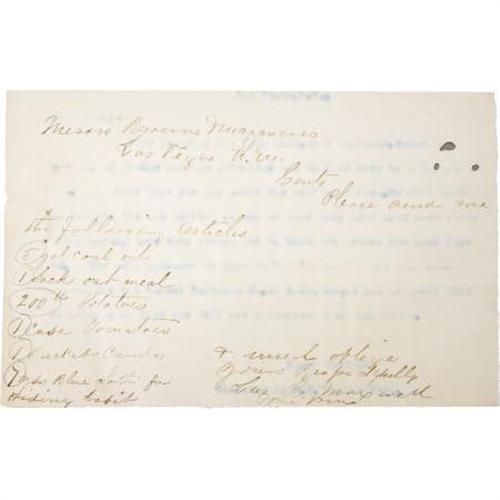 Messrs Browne & Manzanares
Las Vegas N.M.
Gents
Please send me
the following articles
5 gal coal oil
1 Sack oat meal
200 lb Potatoes
1 Case Tomatoes
1
7 yds Blue cloth for
riding habit
& much oblige
Yours Respectfully
Maxwell